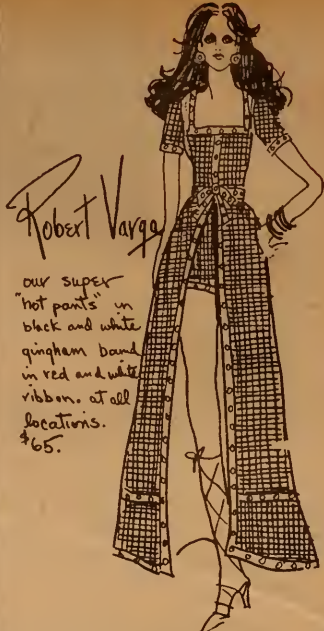 Robert Varga
our super
"hot pants" in
black and white
gingham band
in red and white
ribbon. at all
locations.
$65.